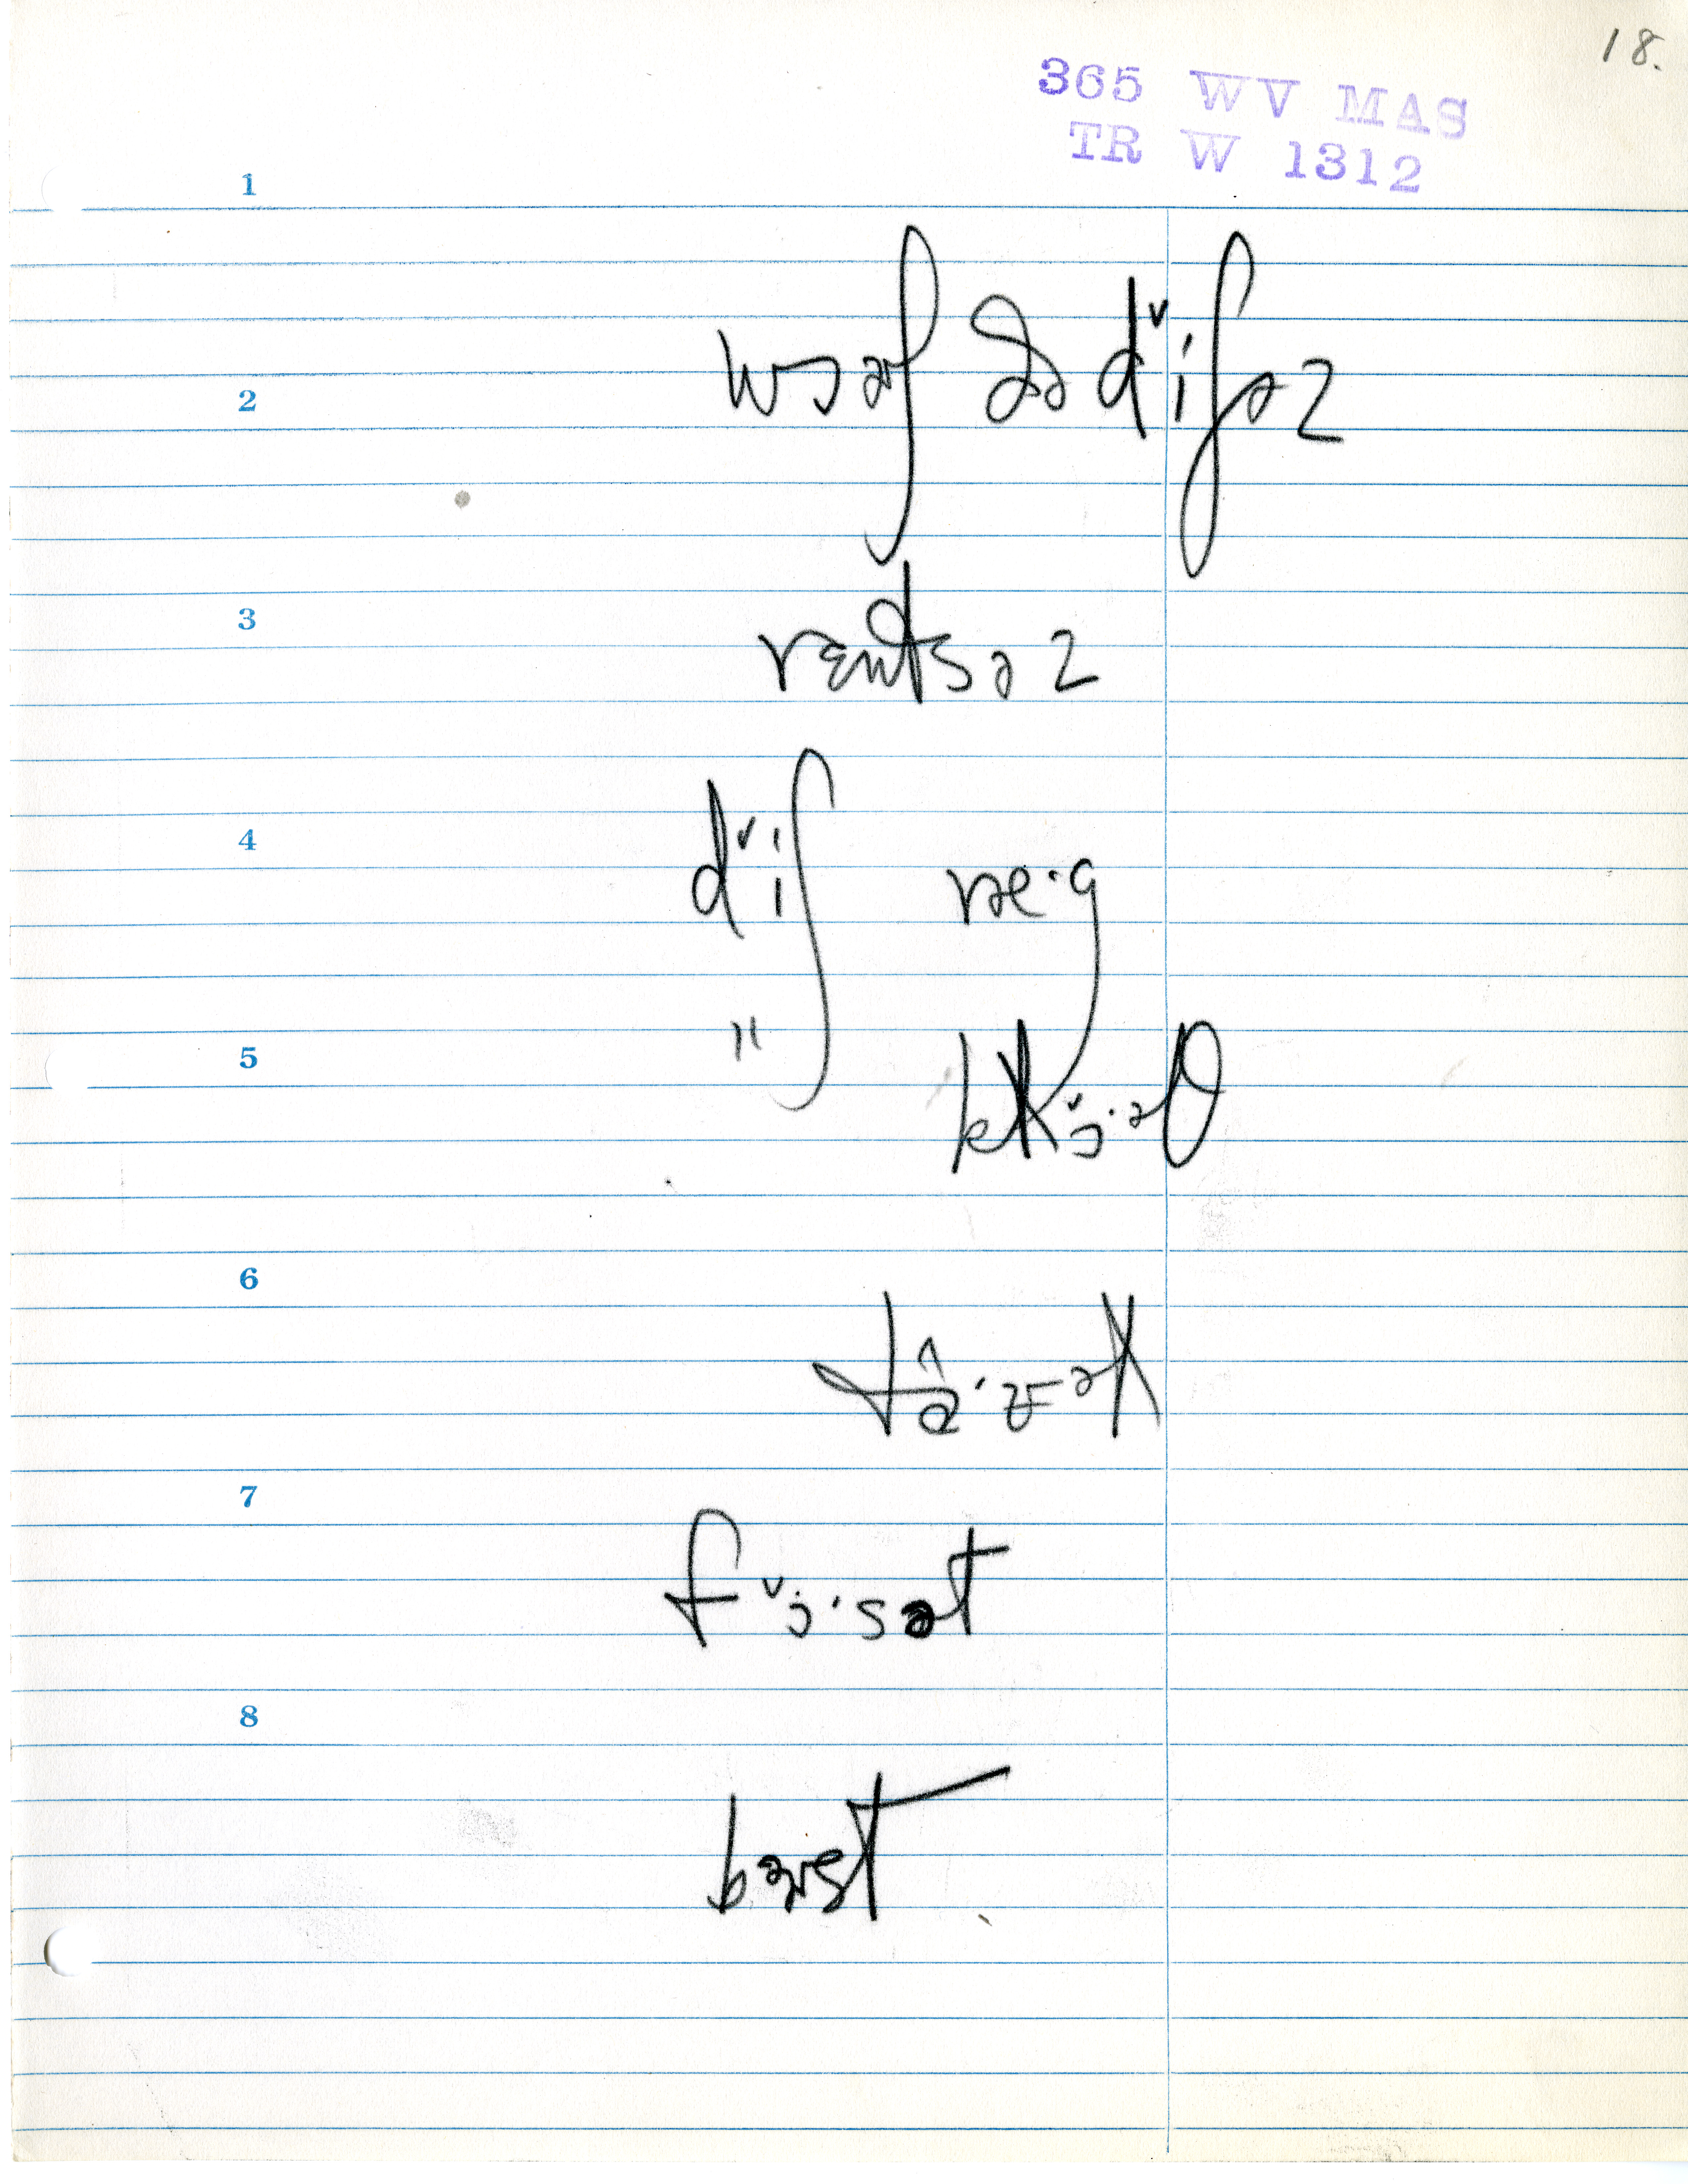 18.
365 WV MAS
TR W 1312
1
2
wɔəʃ ðə dˇiʃəz
3
rentsəz
4
dˇiʃ ræ·g
5
" klˇɔ·əθ
6
7
fˇɔ·sət
8
bərst